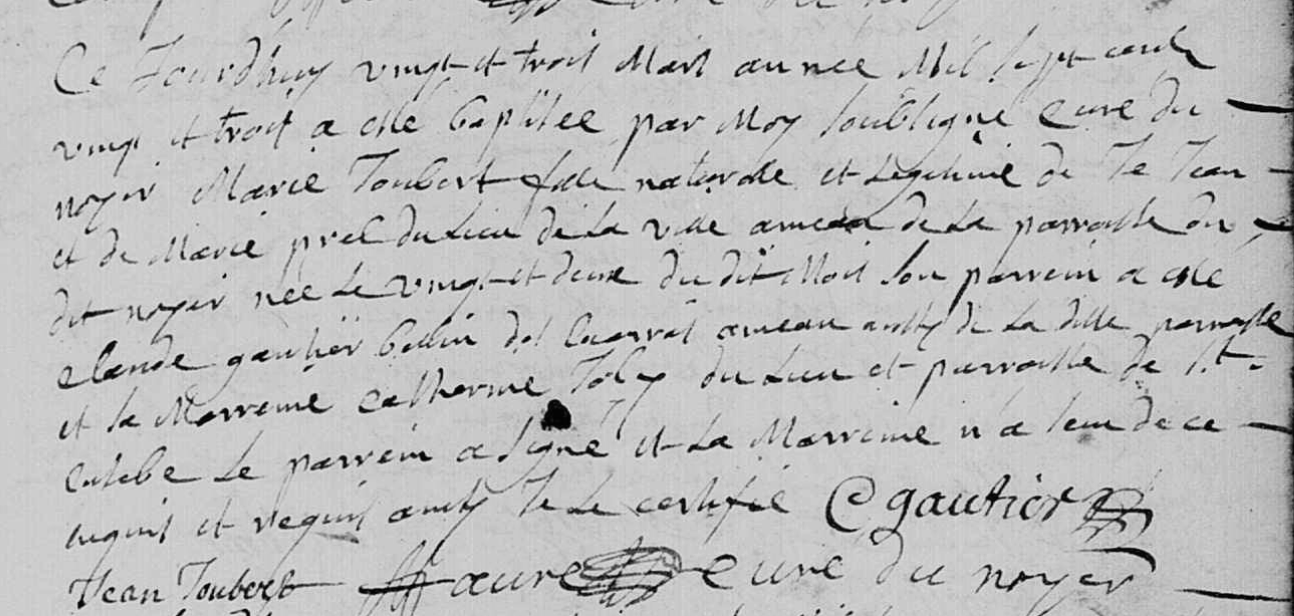 Ce Jourdhuy vingt et trois Mars annee Mil sept cents
vingt et trois a este baptisée par Moy soubsigné Curé du
noyer Marie Joubert fille naturelle et Legitime de Je Jean
et de Marie prel du Lieu de La ville ameau de La parroisse du
dit noyer née Le vingt et deux du dit Mois son parrein a esté
claude gautier du ameau aussy de La ditte parroisse
et sa Marreine catherine Joly du Lieu et parroisse de St.
eusebe Le parrein a signé et La Marreine n'a sceu de ce
enquis et requis ainsy Je Le certifie C gautier
Jean Joubert faure Curé du noyer